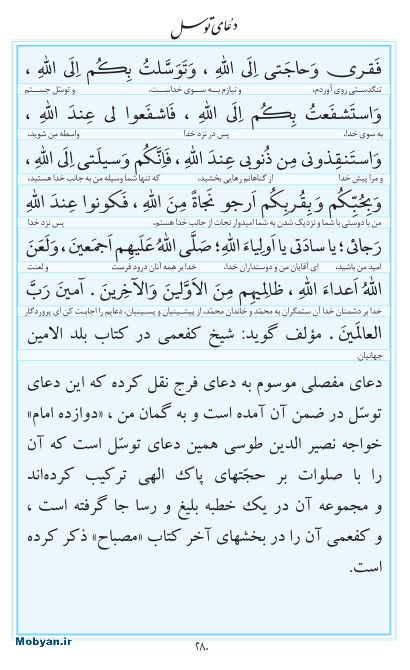 دعای توسل
فَقری وَحاجَتی اِلَی اللهِ ، وَتَوَسَّلتُ بِکُم اِلَی اللهِ ،
تنگدستی روی آوردم، و نیازم به سوی خداست، و توسّل جستم
وَاستَشفَعتُ بِکُم اِلَی اللهِ ، فَاشفَعوا لی عِندَ اللهِ ،
به سوی خدا، پس در نزد خدا واسطه من شوید،
وَاستَنقِذونی مِن ذُنوبی عِندَ اللهِ ، فَاِنَّکُم وَسیلَتی اِلَی اللهِ ،
و مرا پیش خدا از گناهانم رهایی بخشید، که تنها شما وسیله من به جانب خدا هستید،
وَبِحُبِّکُم وَبِقُربِکُم اَرجو نَجاةً مِنَ اللهِ ، فَکونوا عِندَ اللهِ
من با دوستی با شما و نزدیک شدن به شما امیدوار نجات از جانب خدا هستم، پس نزد خدا
رَجائی؛ یا سادَتی یا اَولِیاءَ اللهِ؛ صَلَّی اللهُ عَلَیهِم اَجمَعینَ، وَلَعَنَ
امید من باشید، ای آقایان من و دوستداران خدا، خدا بر همه آنان درود فرست و لعنت
اللهُ اَعداءَ اللهِ ، ظالِمیهِم مِنَ الاَوَّلینَ وَالآخِرینَ . آمینَ رَبَّ
خدا بر دشمنان خدا آن ستمگران به محمّد و خاندان محمّد، از پیشینیان و پسینیان، دعایم را اجابت کن ای پروردگار
العالَمینَ . مؤلف گوید: شیخ کفعمی در کتاب بلد الامین
جهانیان
دعای مفصلی موسوم به دعای فرج نقل کرده که این دعای
توسّل در ضمن آن آمده است و به گمان من ، «دوازده امام»
خواجه نصیر الدین طوسی همین دعای توسّل است که آن
را با صلوات بر حجّتهای پاک الهی ترکیب کرده‌اند
و مجموعه آن در یک خطبه بلیغ و رسا جا گرفته است ،
و کفعمی آن را در بخشهای آخر کتاب «مصباح» ذکر کرده
است.
۲۸۰
Mobyan.ir